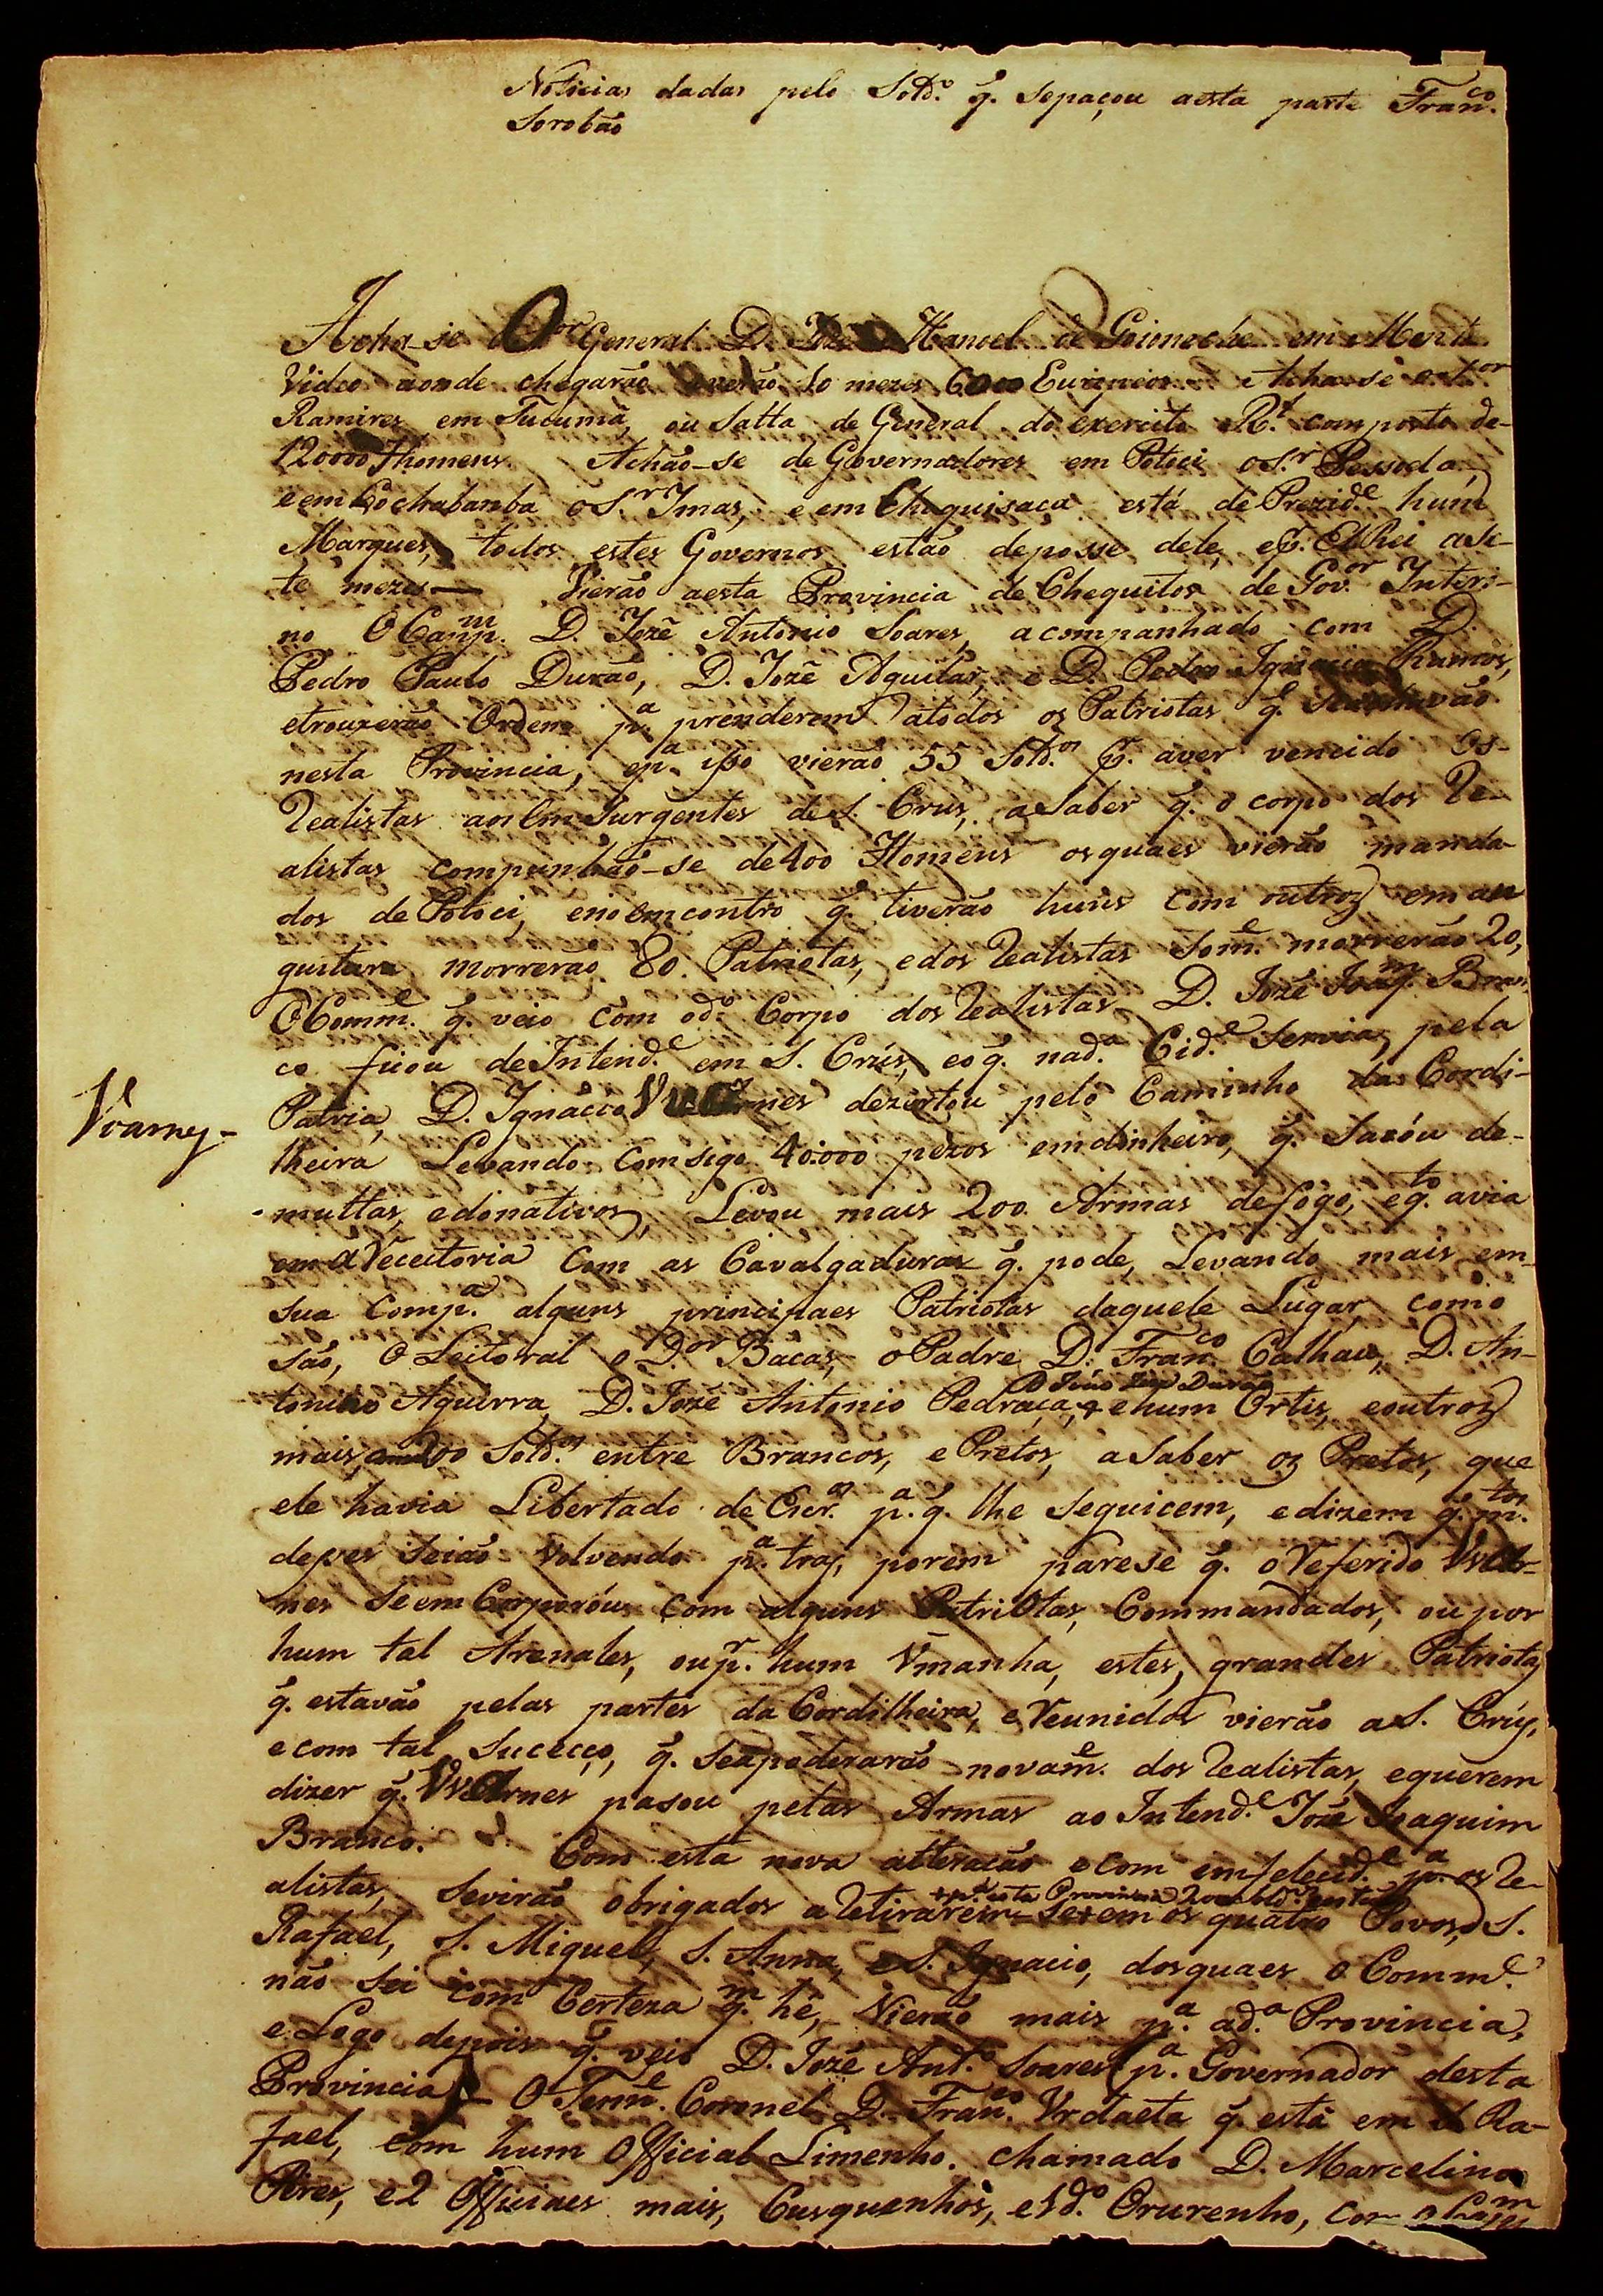 Noticias dadas pelo Sold.º q̃. sepaçou aesta parte Fran.co
Sorobão
Acha-se O General D. Manoel de Goionoche em Monte
Video aonde chegarão averão 10 mezes 6000 Achase o
Ramires em Tucumã, ou Salta de General do exercito R.l composto de-
12000 Homens. Achão-se de Governadores em Potoci o S.r
e em Cochabanba o S.r Imas, e em Chequisaca está de Prezid.e hum
Marques, todos estes Governos estão deposse dele, e p.r ElRei a Se-
te mezes — Vierão aesta Provincia de Chequitos de Gov.or Interi-
no O Camp.m D. Jozê Antonio Soares, acompanhado com D.
Pedro Paulo Durão, D. Jozê Aguilar, e D. Pedro Ignacio Ramos,
etrouxerão Ordens p.a prenderem atodos os Patriotas q̃.
nesta Provincia, e p.a isso vierão 55 Sold.os p.r aver vencido os-
Realistas aos Em Surgentes de S. Crus, a Saber q̃. o corpo dos Re-
alistas compunhaõ-se de 400 Homens os quaes vierão manda-
dos de Potoci, e no emcontro q̃. tiverão huns com outros em an
gustura morrerão 80. Patriotas, e dos Realistas Som.e morrerão 20,
O Comm.e q̃. veio com o d.º Corpo dos Realistas D. Jozé Joaq.m Bran
co ficou de Intend.e em S. Crús, e o q̃. na d.a Cid.e Servia pela
Patria, D. Ignácio dezertou pelo Caminho da Cordi-
lheira Levando comsigo 40:000 pezos em dinheiro, q̃. Saxóu de-
multas, e donativos, Levou mais 200 Armas de fogo, e q.to avia
em a Receitoria com as Cavalgaduras q̃. pode, Levando mais em
sua Comp.a alguns principaes Patriotas daquele Lugar, como
são, O Leitoral o D.or Bacas, o Padre D. Fran.co Calhau, D. An-
tonino Aguirra, D. Jozê Antonio Pedraça, + e hum Ortis, e outros
mais, 200 Sold.os entre Brancos, e Pretos, a Saber os Pretos, que
ele havia Libertado de Escr.os p.a q̃. lhe Seguicem, e dizem q̃. m.tos
depes Seião volvendo p.a tras, porem parese q̃. o Referido VvaR-
nes Se em Corporóu com alguns Patriotas, Commandados, ou por
hum tal Arenales, ou p.r hum Vmanha, estes, grandes Patriotas
q̃. estavão pelas partes da Cordilheira, e Reunidos vierão a S. Crús,
e com tal Sucecço, q̃. Seapoderarão novam.e dos Realistas, e querem
dizer q̃. VvaRnes pasou pelas Armas ao Intend.e Jozé Joaquim
Branco. Com esta nova alteração e com emfelecid.e p.a os Re-
alistas, Sevirão obrigados a Retirarem-Se + em os quatro Povos, S.
Rafael, S. Miguel, S. Anna, e S. Ignacio, dos quaes o Comm.e
não sei com Certeza q.m hê, Vierão mais p.a a d.a Provincia,
e Logo depois q̃. veio D. Jozé Ant.º Soares p.a Governador desta
Provincia — O Tenn.e Coronel D. Fran.co Vrdaeta q̃. está em S. Ra-
fael, com hum Official Limenho, chamado D. Marcelino
Péres, e 2 Officiaes mais, Cusquenhos, e 1 d.º Orurenho, com